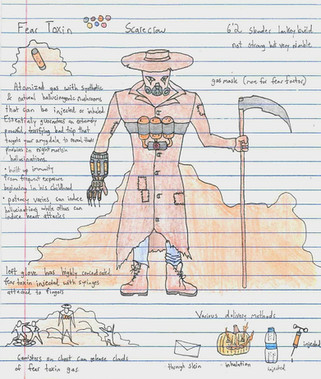 Fear Toxin
Scarecrow
6'2 slender lankey build
not strong but very nimble
gas mask (sure for fear factor)
Atomized gas with synthetic
& natural hallucinogenic mushrooms
that can be injected or inhaled
Essentially generates an extremely
powerful, terrifying bad trip that
targets your amygdala to
hallucinations
• built up immunity
from frequent exposure
beginning in his childhood
• potency varies, can induce
hallucinating while others can
induce heart attacks
left glove has highly concentrated
fear toxin injected with syringes
attached to fingers
Canisters on chest can release clouds
of fear toxin gas
Various delivery methods
through skin
inhalation
injected